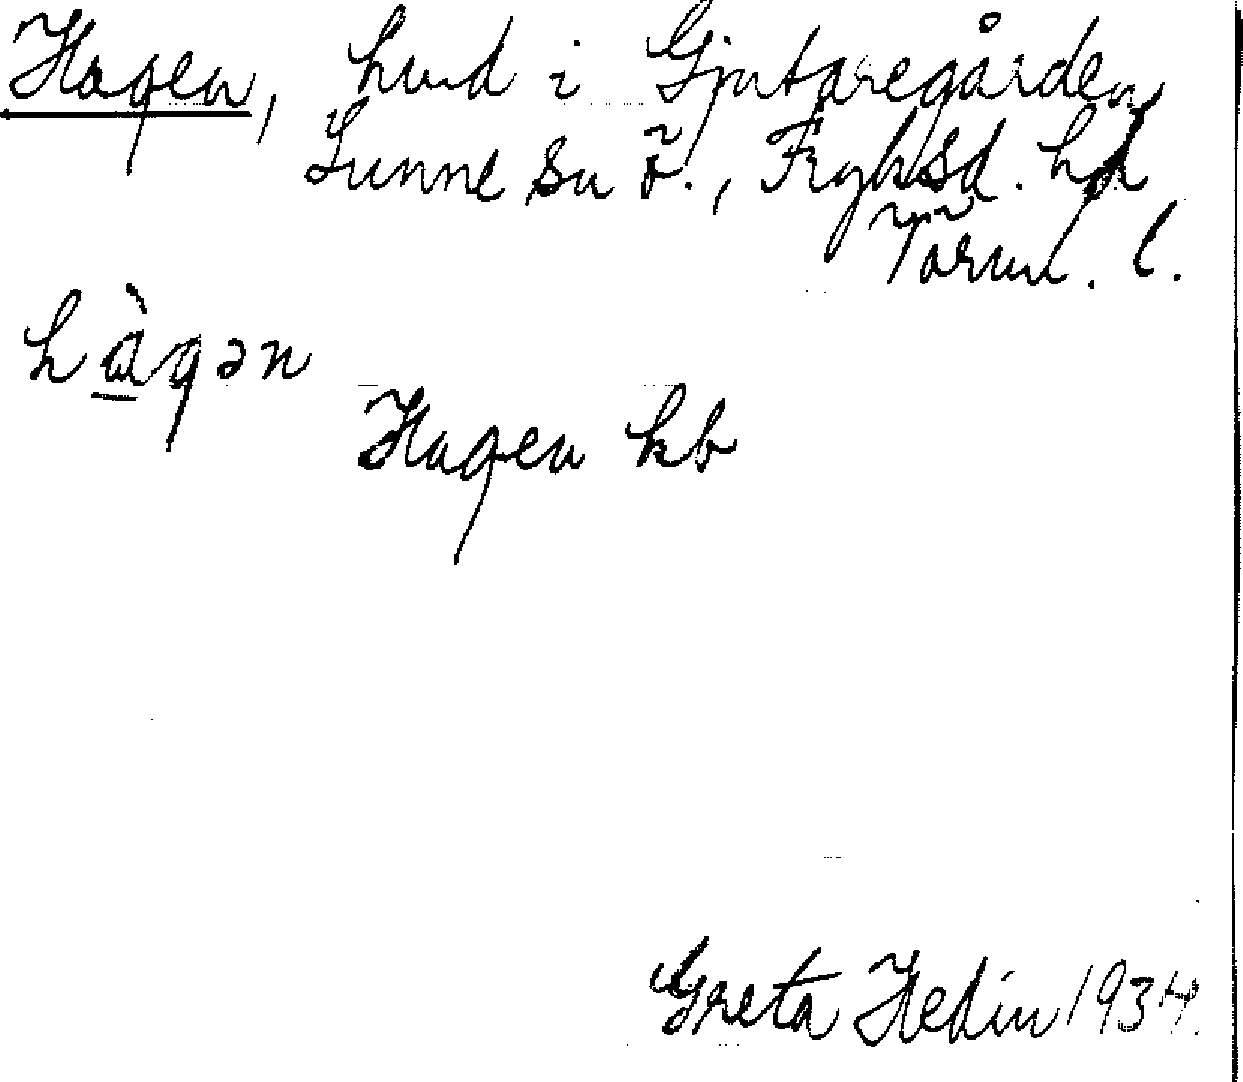 Hagen, hund i Gjutaregården
Sunne sn ö., Fryksd. hd
Värml. l.
hàgən
Hagen kb
Greta Hedin 1934.